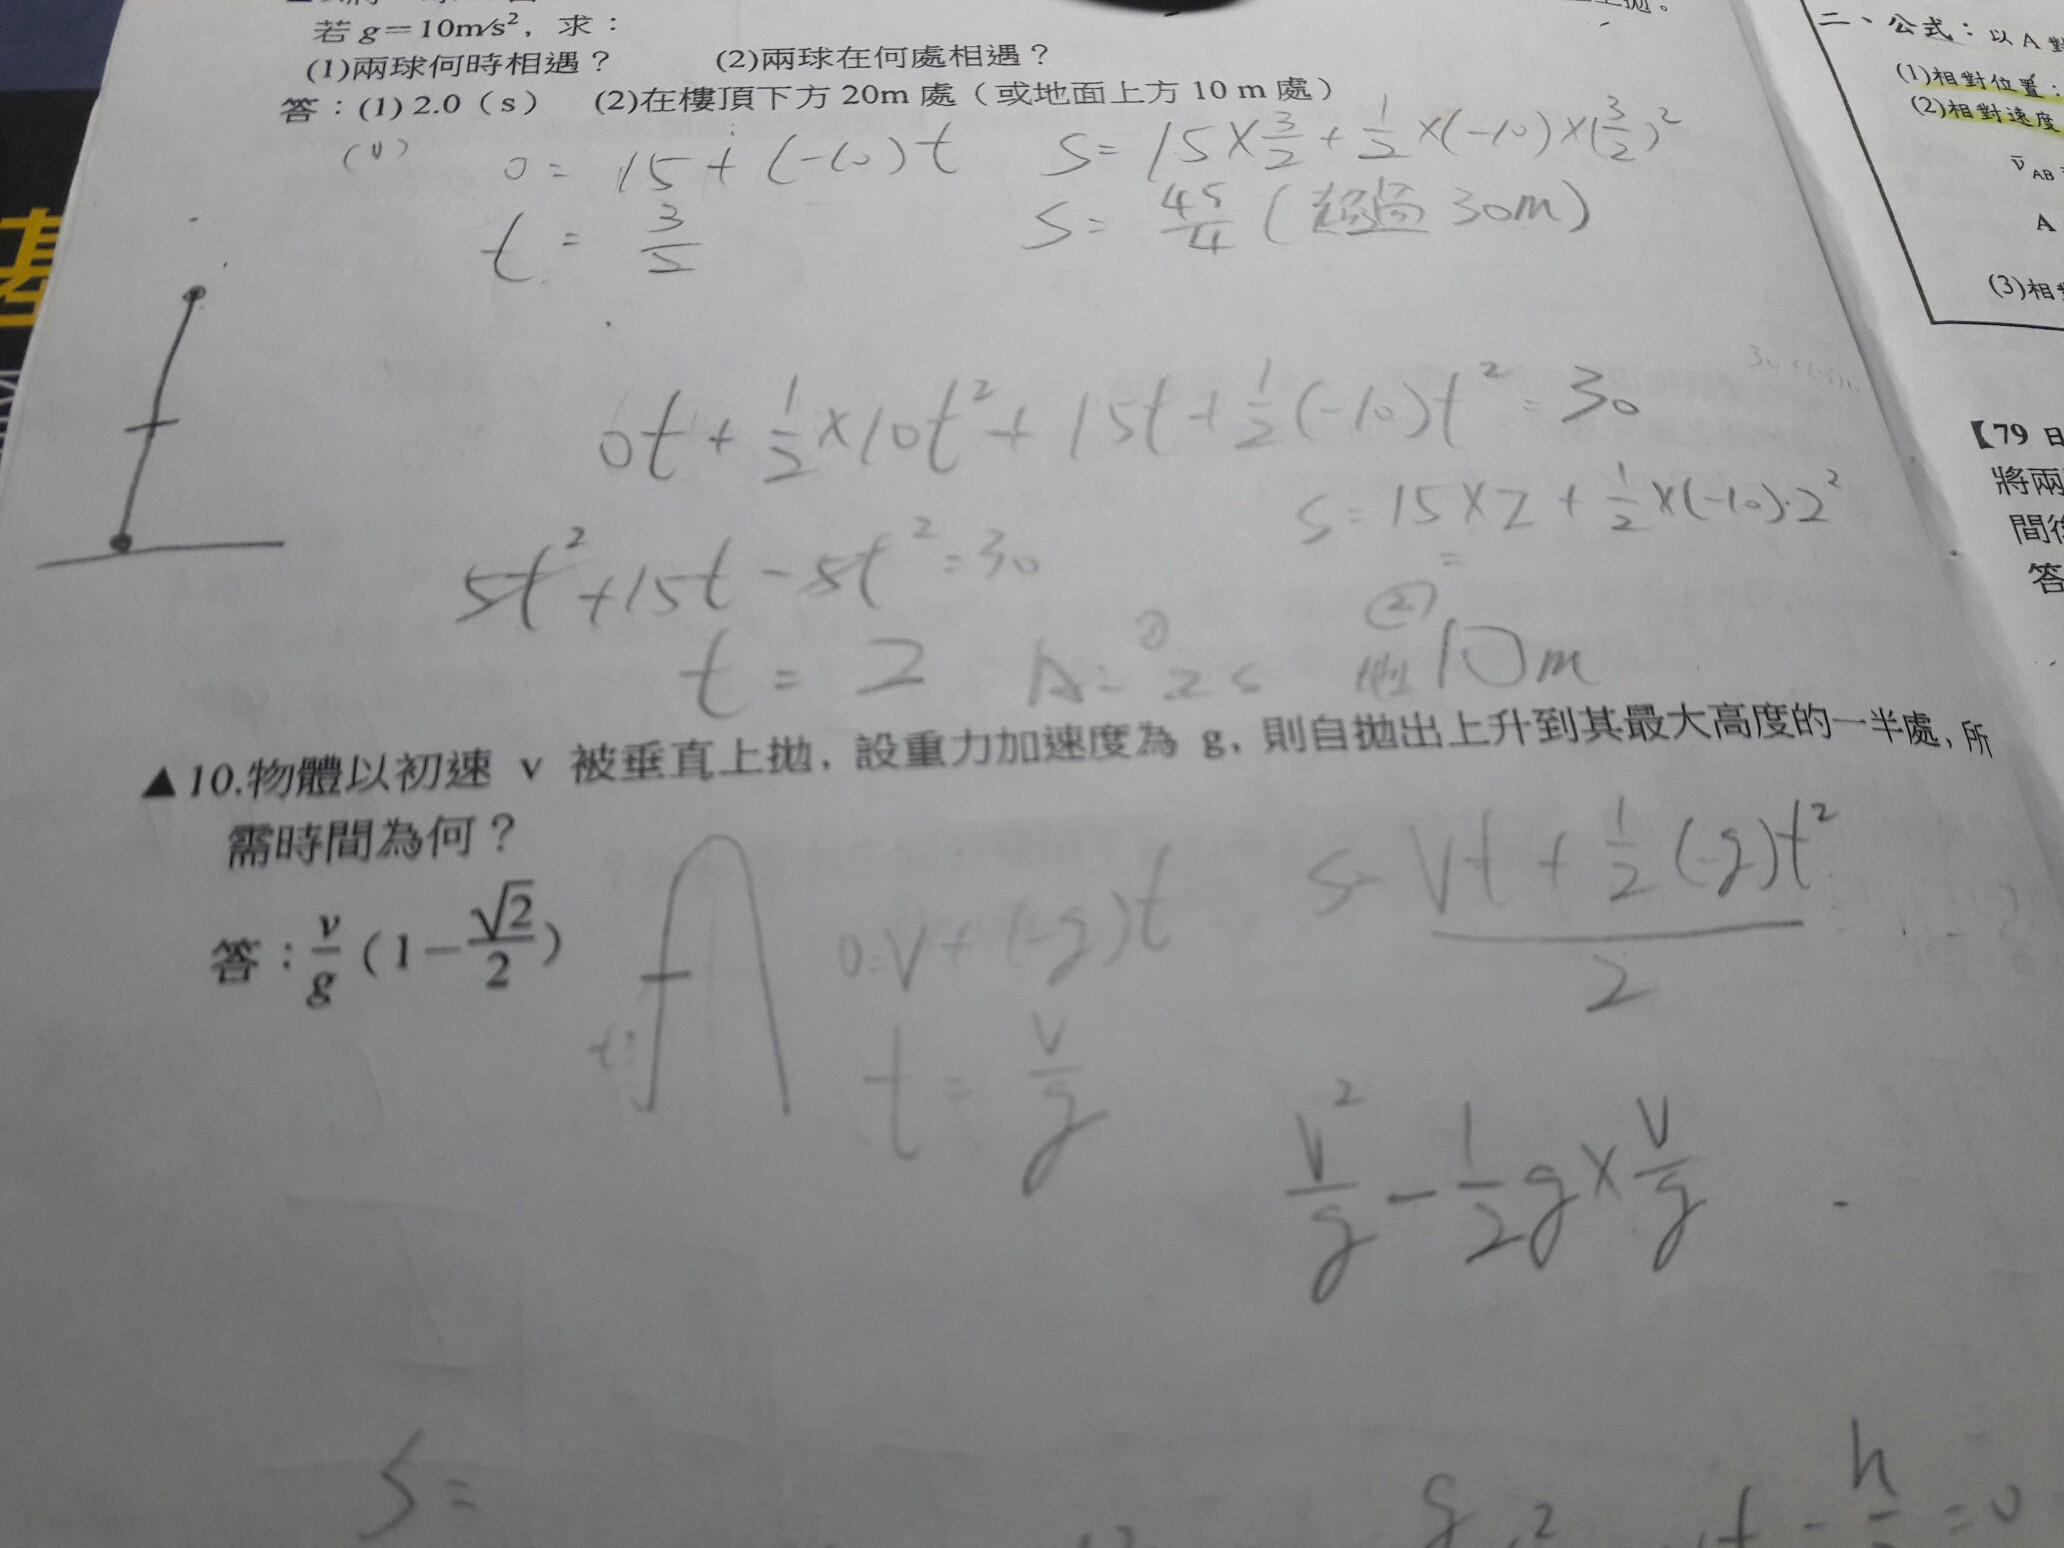 若 g＝10m/s²，求：
(1)兩球何時相遇？ (2)兩球在何處相遇？
答：(1) 2.0（s） (2)在樓頂下方 20m 處（或地面上方 10 m 處）
0 = 15 + (-10)t S = 15×3/2 + 1/2×(-10)×(3/2)²
t = 3/2 S = 45/4 (超過 30m)
0t + 1/2×10t² + 15t + 1/2(-10)t² = 30
S = 15×2 + 1/2×(-10)·2²
5t² + 15t - 5t² = 30 =
t = 2 A: ① 2s ② 地 10m
▲10.物體以初速 v 被垂直上拋，設重力加速度為 g，則自拋出上升到其最大高度的一半處，所
需時間為何？
S = (Vt + 1/2(-g)t²)/2
答：v/g (1－√2/2)
0=V+(-g)t
t = V/g
V²/g - 1/2 g × V/g
S =
二、公式：以 A 對
(1)相對位置：
(2)相對速度
v̄AB
A
(3)相
【79 日
將兩
間後
答